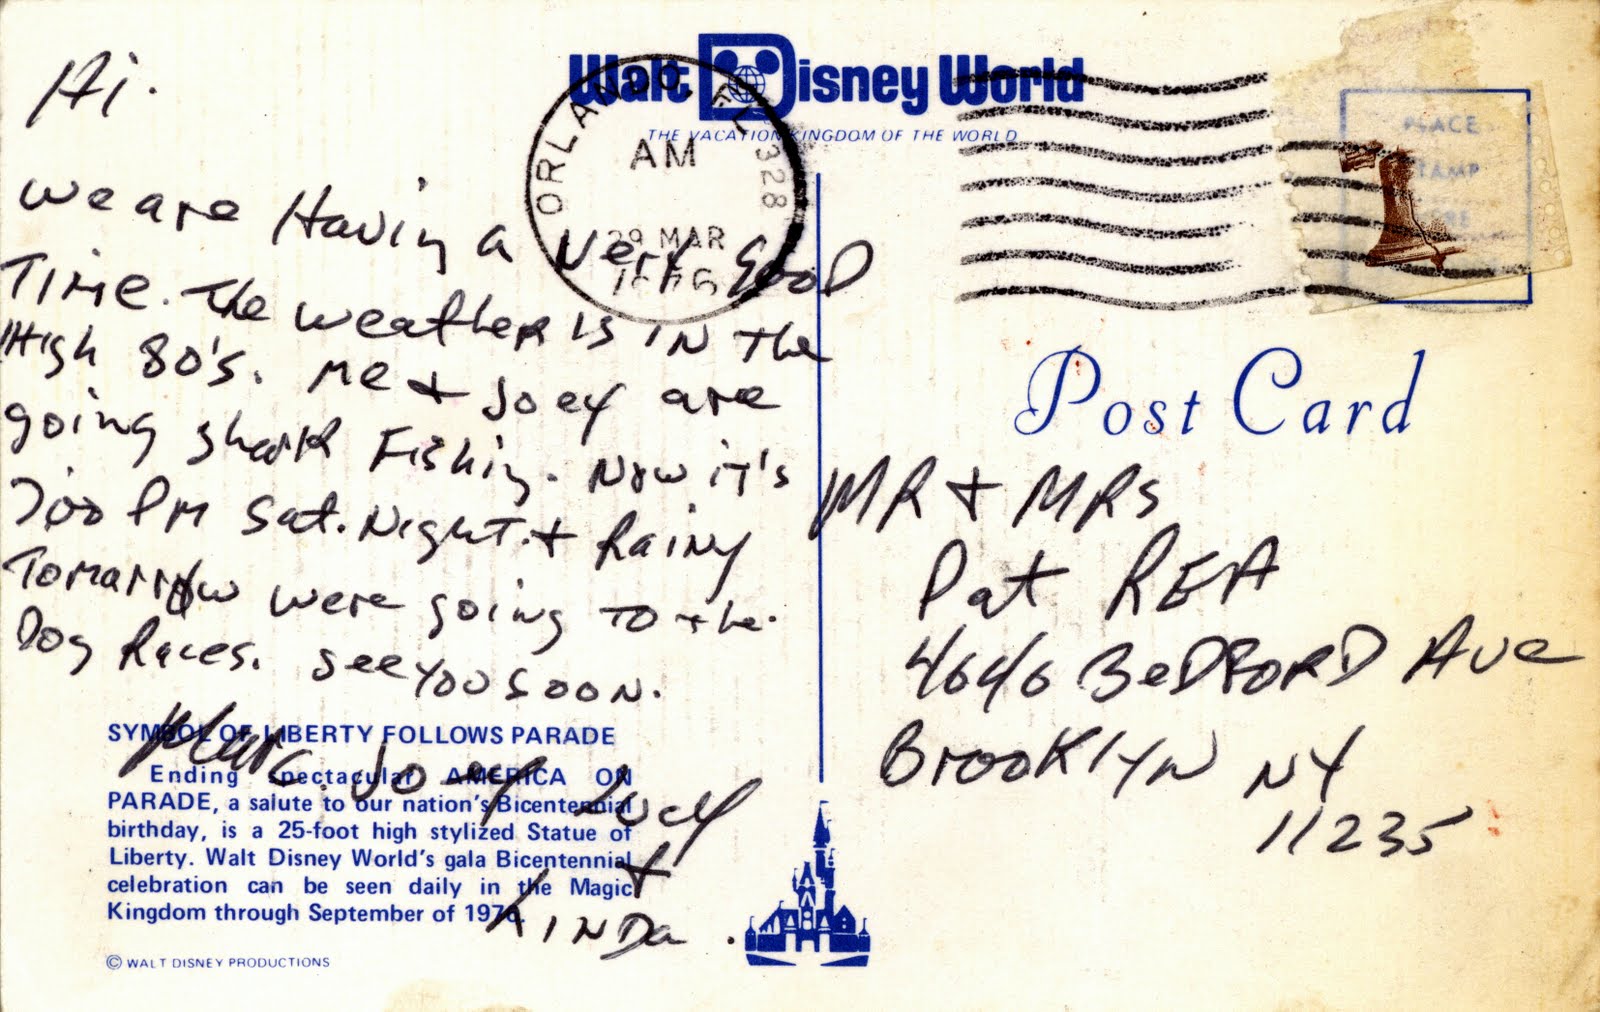 Walt Disney World
THE VACATION KINGDOM OF THE WORLD
ORLANDO, FL 328
AM
29 MAR
1976
PLACE
STAMP
HERE
Post Card
Hi.
We are Having a Very Good
Time. The weather is in the
High 80's. Me + Joey are
going shark Fishing. Now it's
7:00 PM Sat. Night. + Rainy
Tomarrow were going to the
Dog Races. See you soon.
Marc. Joey Lucy
+
Linda.
MR + MRS
Pat REA
4646 BEDFORD Ave
Brooklyn NY
11235
SYMBOL OF LIBERTY FOLLOWS PARADE
Ending spectacular AMERICA ON
PARADE, a salute to our nation's Bicentennial
birthday, is a 25-foot high stylized Statue of
Liberty. Walt Disney World's gala Bicentennial
celebration can be seen daily in the Magic
Kingdom through September of 1976.
© WALT DISNEY PRODUCTIONS